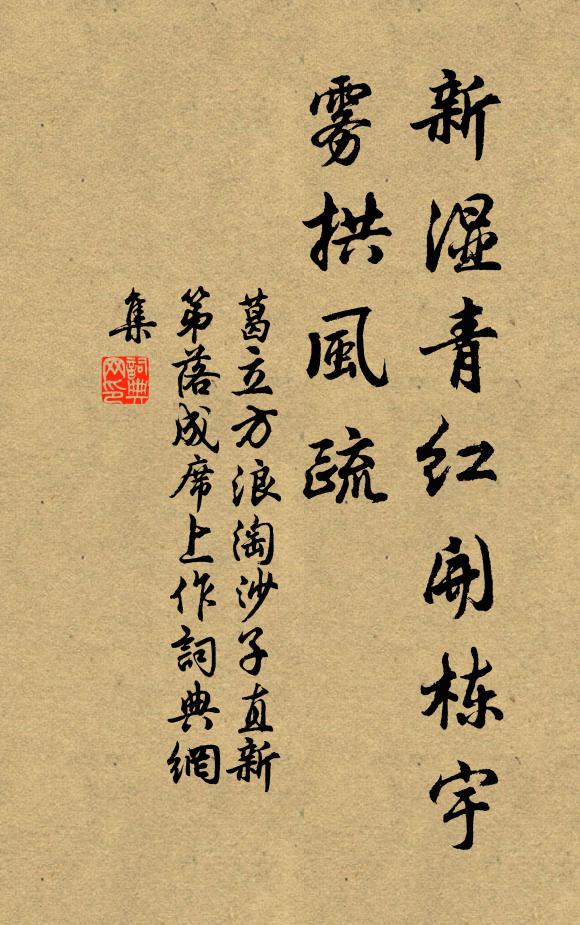 新湿青红开栋宇
雾拱風疏
葛立方浪淘沙子直新
第落成席上作詞典網
集
詞典
网印